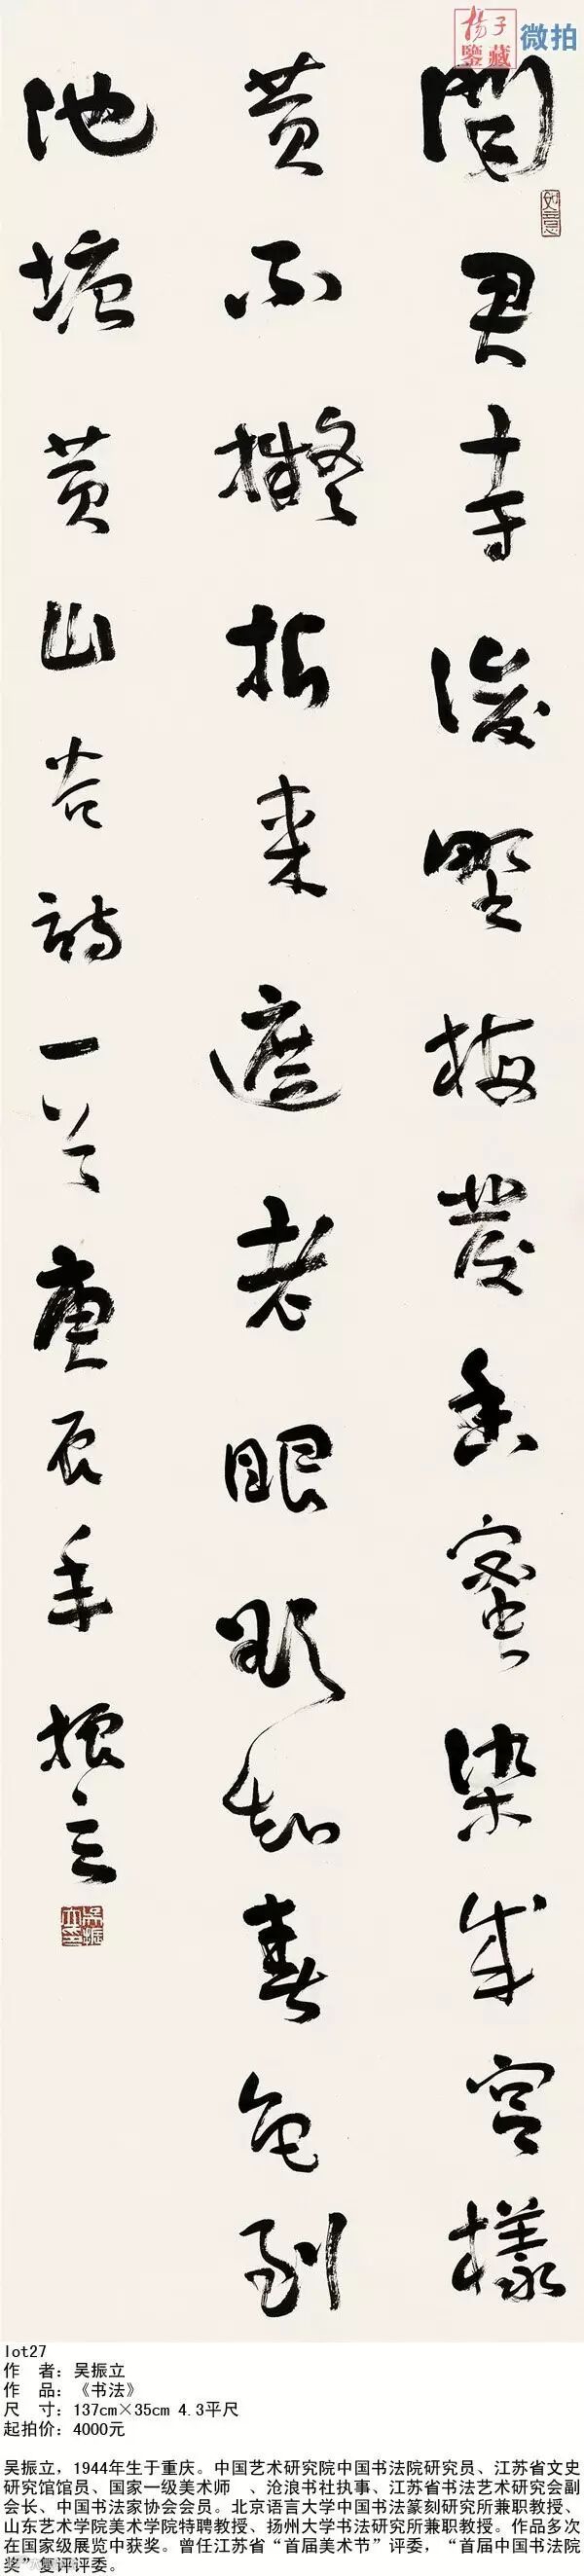 揚子鑒藏 微拍
聞君寺後野梅發香蜜染成宮樣
黄不擬折来遮老眼欲知春色到
池塘 黄山谷詩一首 庚辰年 振立
lot27
作　者：吴振立
作　品：《书法》
尺　寸：137cm×35cm 4.3平尺
起拍价：4000元
吴振立，1944年生于重庆。中国艺术研究院中国书法院研究员、江苏省文史
研究馆馆员、国家一级美术师　、沧浪书社执事、江苏省书法艺术研究会副
会长、中国书法家协会会员。北京语言大学中国书法篆刻研究所兼职教授、
山东艺术学院美术学院特聘教授、扬州大学书法研究所兼职教授。作品多次
在国家级展览中获奖。曾任江苏省“首届美术节”评委，“首届中国书法院
奖”复评评委。